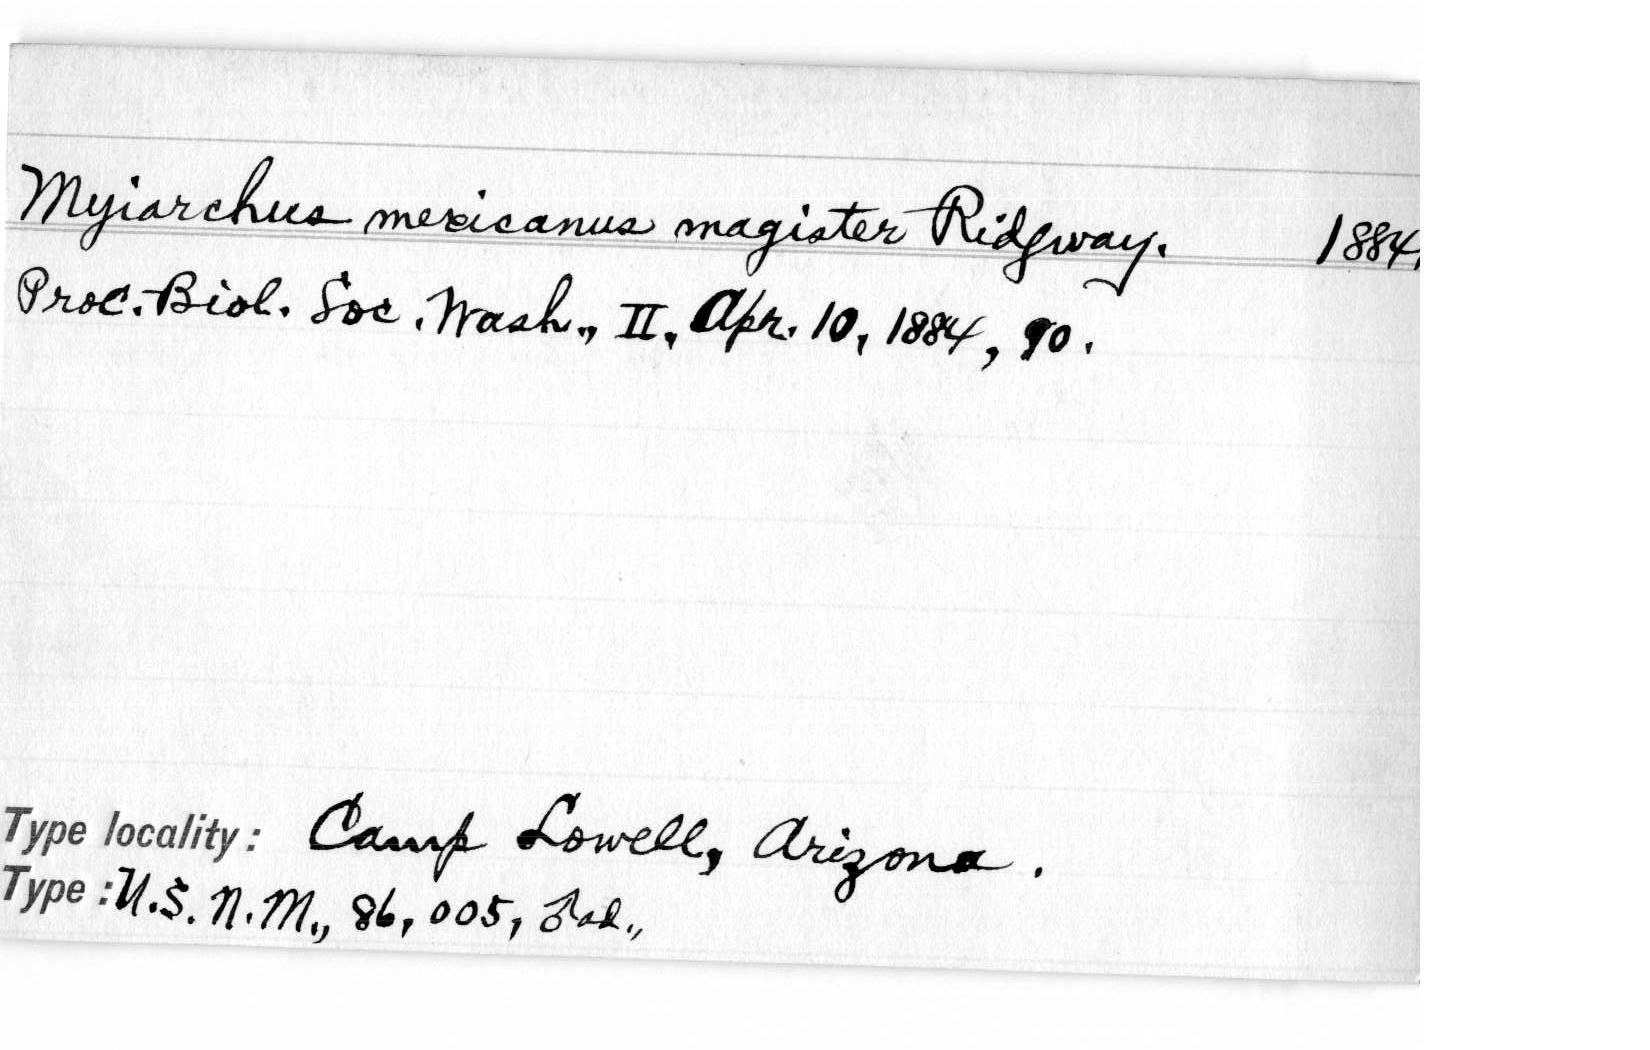 Myiarchus mexicanus magister Ridgway. 1884.
Proc. Biol. Soc. Wash., II, Apr. 10, 1884, 90.
Type locality: Camp Lowell, Arizona.
Type: U.S.N.M., 86,005, ♂ad.,